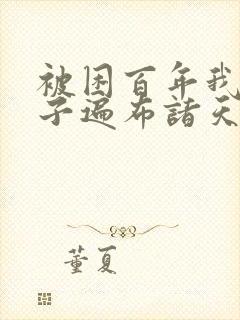 被困百年我
子遍布諸天
董夏